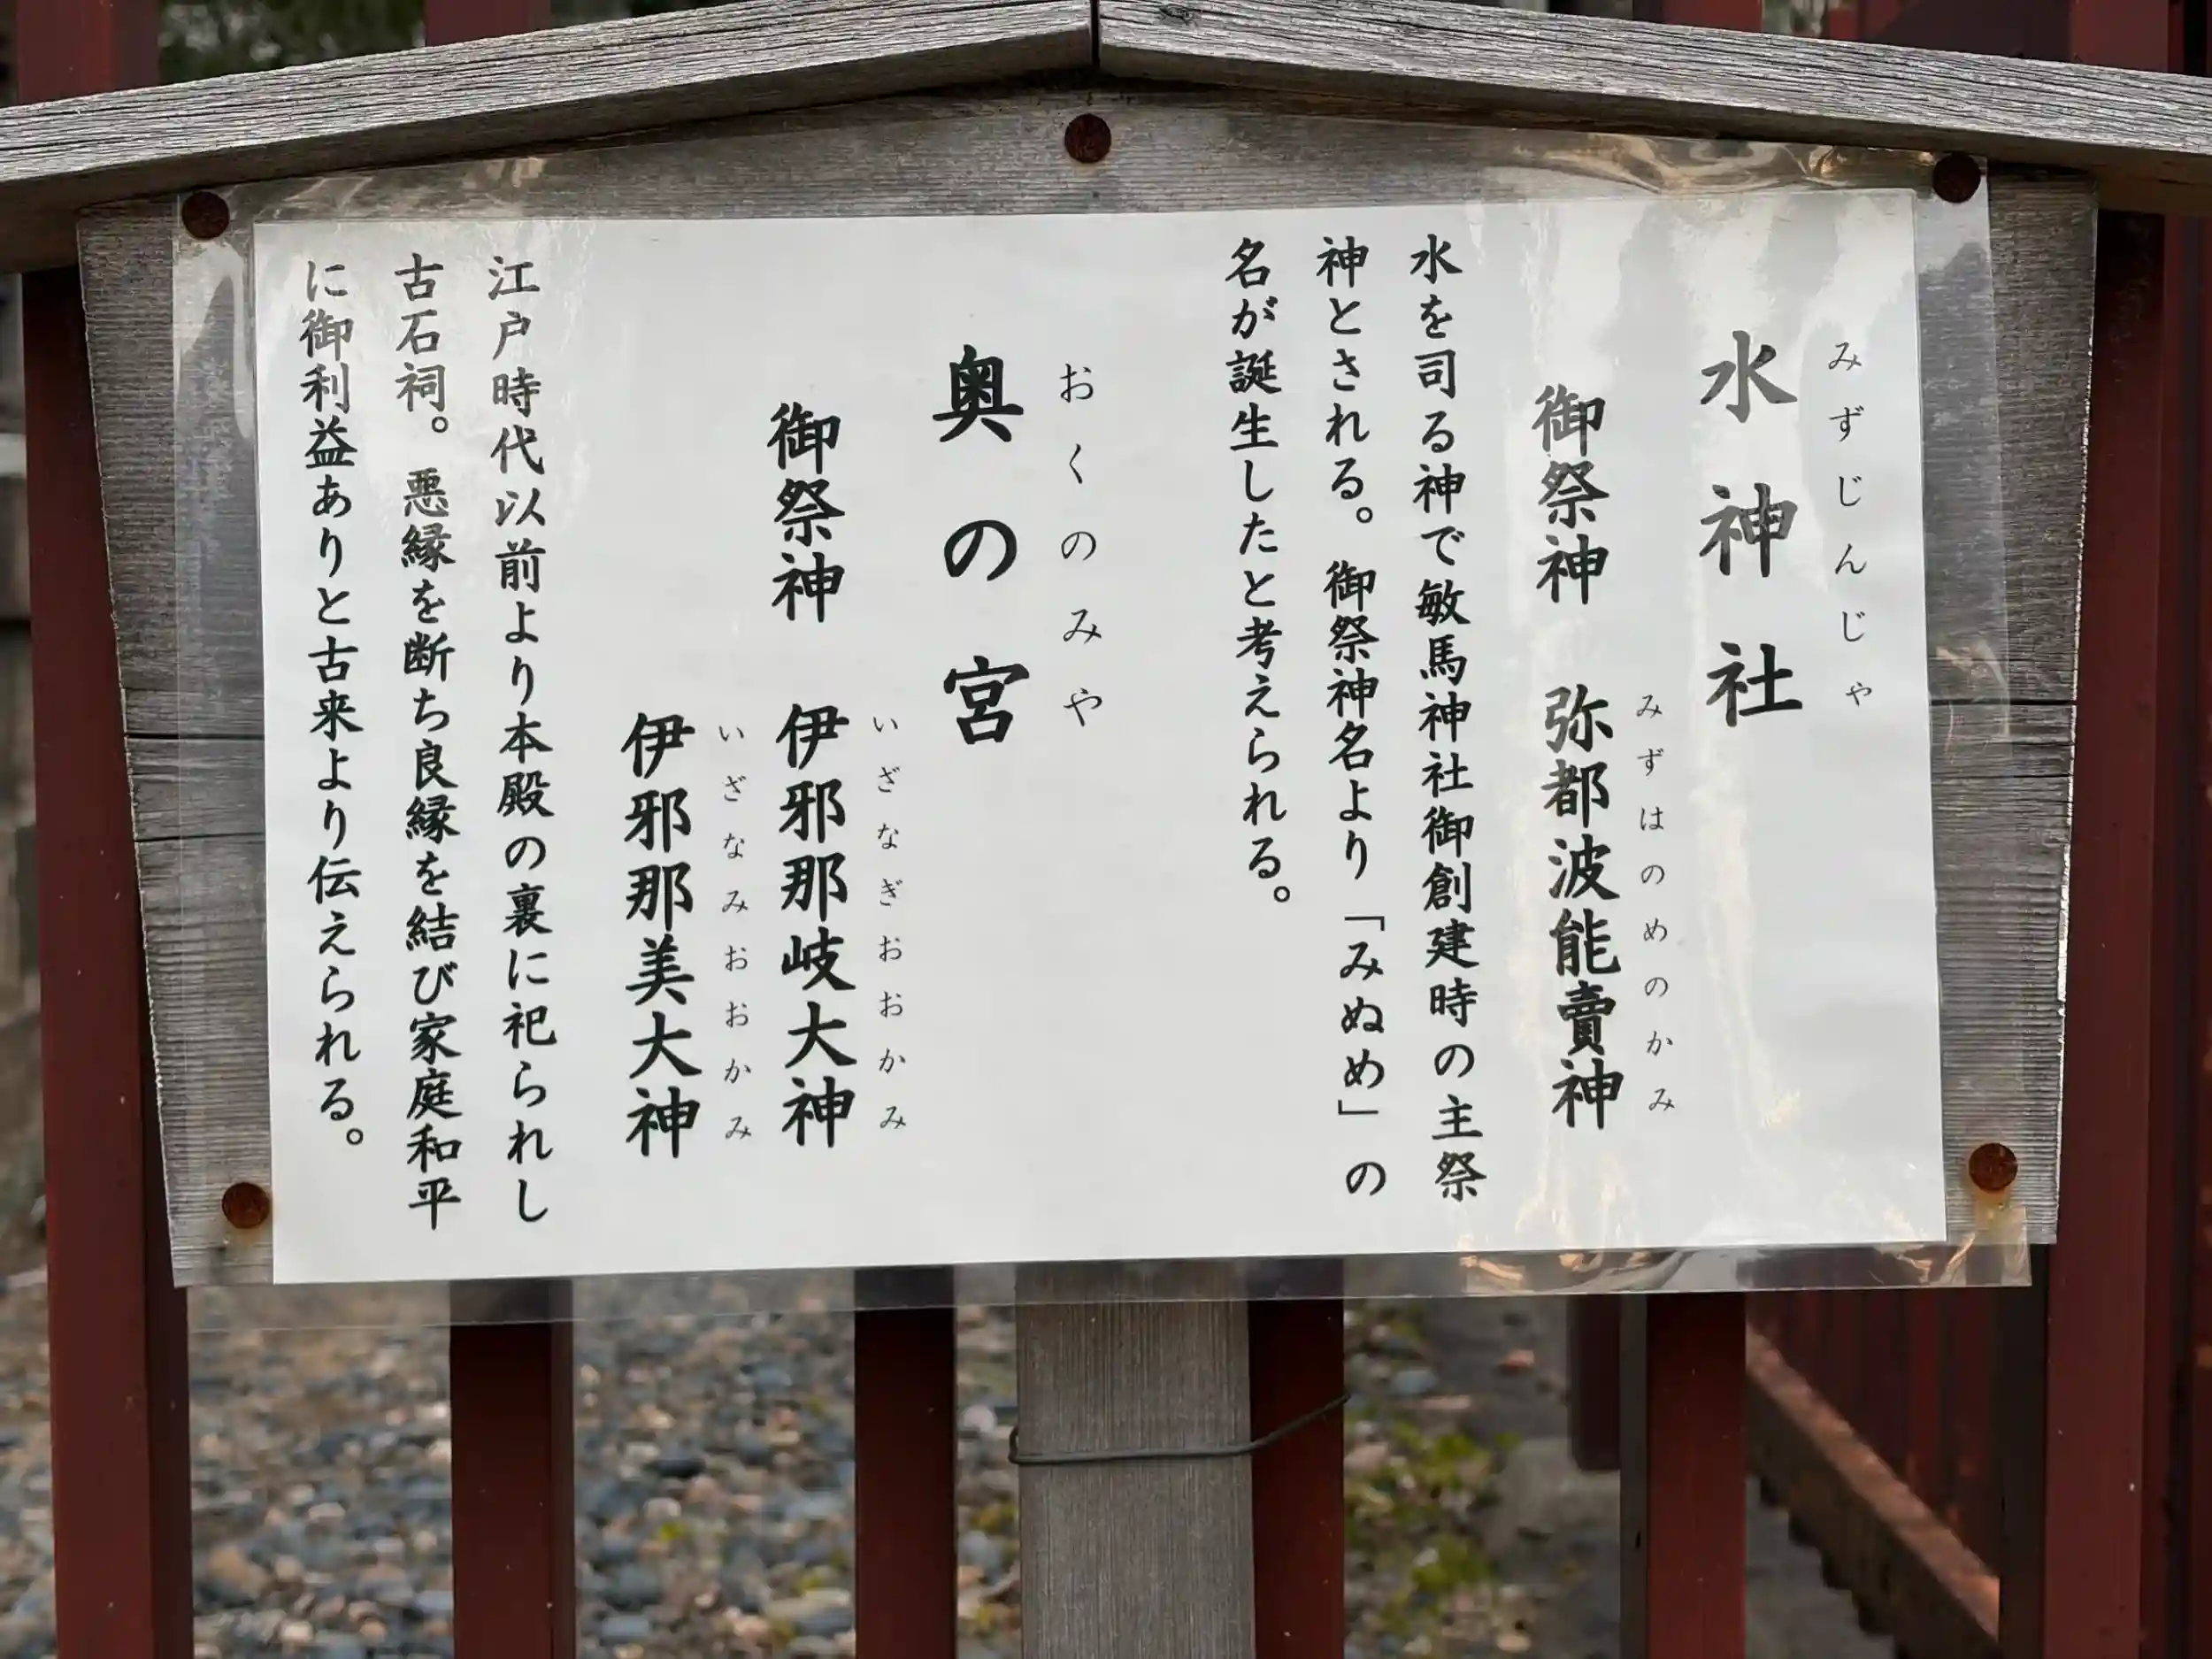 みずじんじゃ
水神社
みずはのめのかみ
御祭神 弥都波能賣神
水を司る神で敏馬神社御創建時の主祭
神とされる。御祭神名より「みぬめ」の
名が誕生したと考えられる。
おくのみや
奥の宮
いざなぎおおかみ
御祭神 伊邪那岐大神
いざなみおおかみ
伊邪那美大神
江戸時代以前より本殿の裏に祀られし
古石祠。悪縁を断ち良縁を結び家庭和平
に御利益ありと古来より伝えられる。